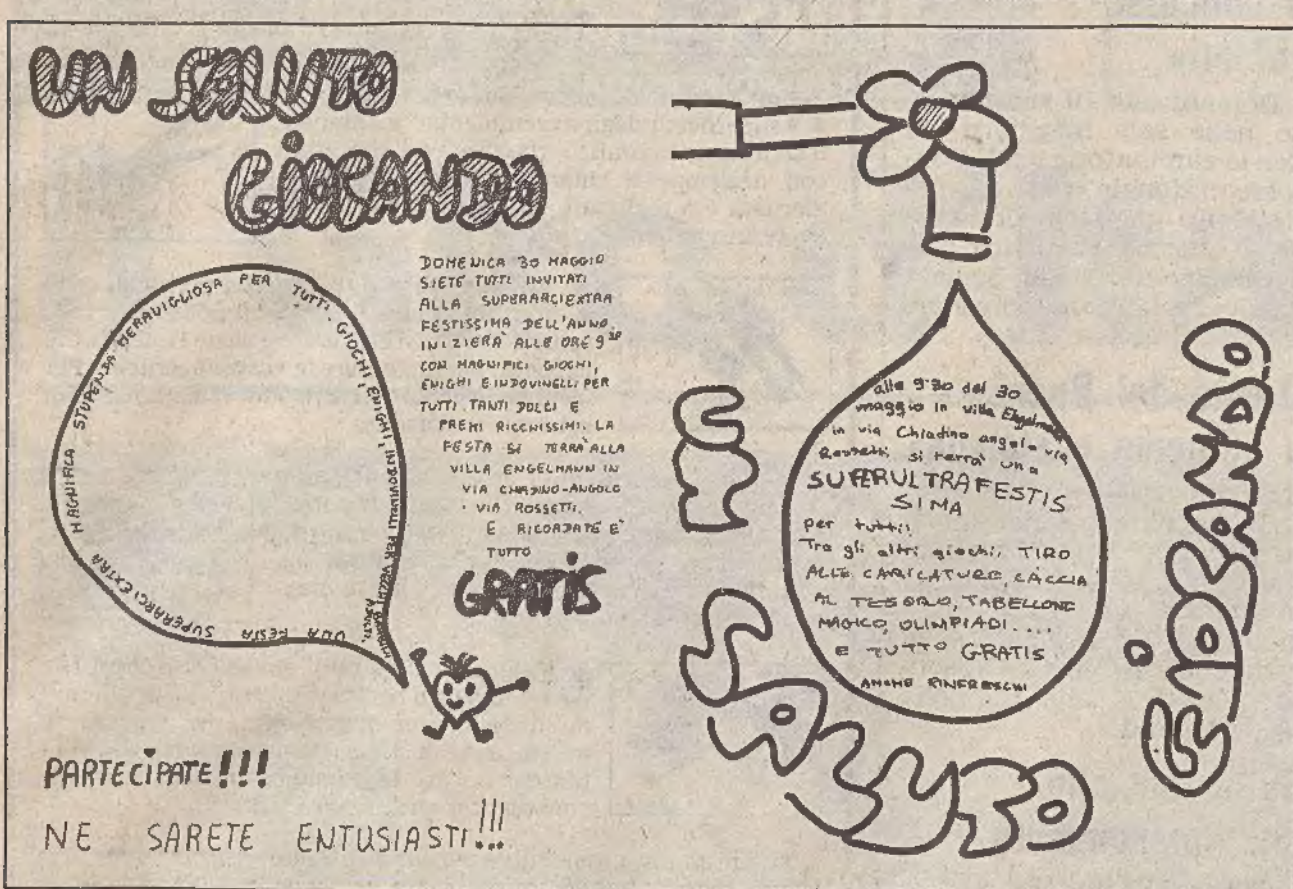 UN SALUTO
GIOCANDO
UNA FESTA SUPERARCI EXTRA MAGNIFICA STUPENDA MERAVIGLIOSA PER TUTTI - GIOCHI, ENIGHI, INDOVINELLI PER VECCHI BAMBINI ADULTI.
DOMENICA 30 MAGGIO
SIETE TUTTI INVITATI
ALLA SUPERARCIEXTRA
FESTISSIMA DELL'ANNO.
INIZIERÀ ALLE ORE 9³⁰
CON MAGNIFICI GIOCHI,
ENIGHI E INDOVINELLI PER
TUTTI. TANTI DOLCI E
PREMI RICCHISSIMI. LA
FESTA SI TERRÀ ALLA
VILLA ENGELMANN IN
VIA CHIADINO-ANGOLO
VIA ROSSETTI.
E RICORDATE È
TUTTO
GRATIS
PARTECIPATE!!!
NE SARETE ENTUSIASTI!!!
UN
SALUTO
GIOCANDO
alle 9.30 del 30
maggio in villa Engelmann
in via Chiadino angolo via
Rossetti si terrà una
SUPERULTRAFESTIS
SIMA
per tutti!
Tra gli altri giochi: TIRO
ALLE CARICATURE, CACCIA
AL TESORO, TABELLONE
MAGICO, OLIMPIADI....
E TUTTO GRATIS
ANCHE RINFRESCHI